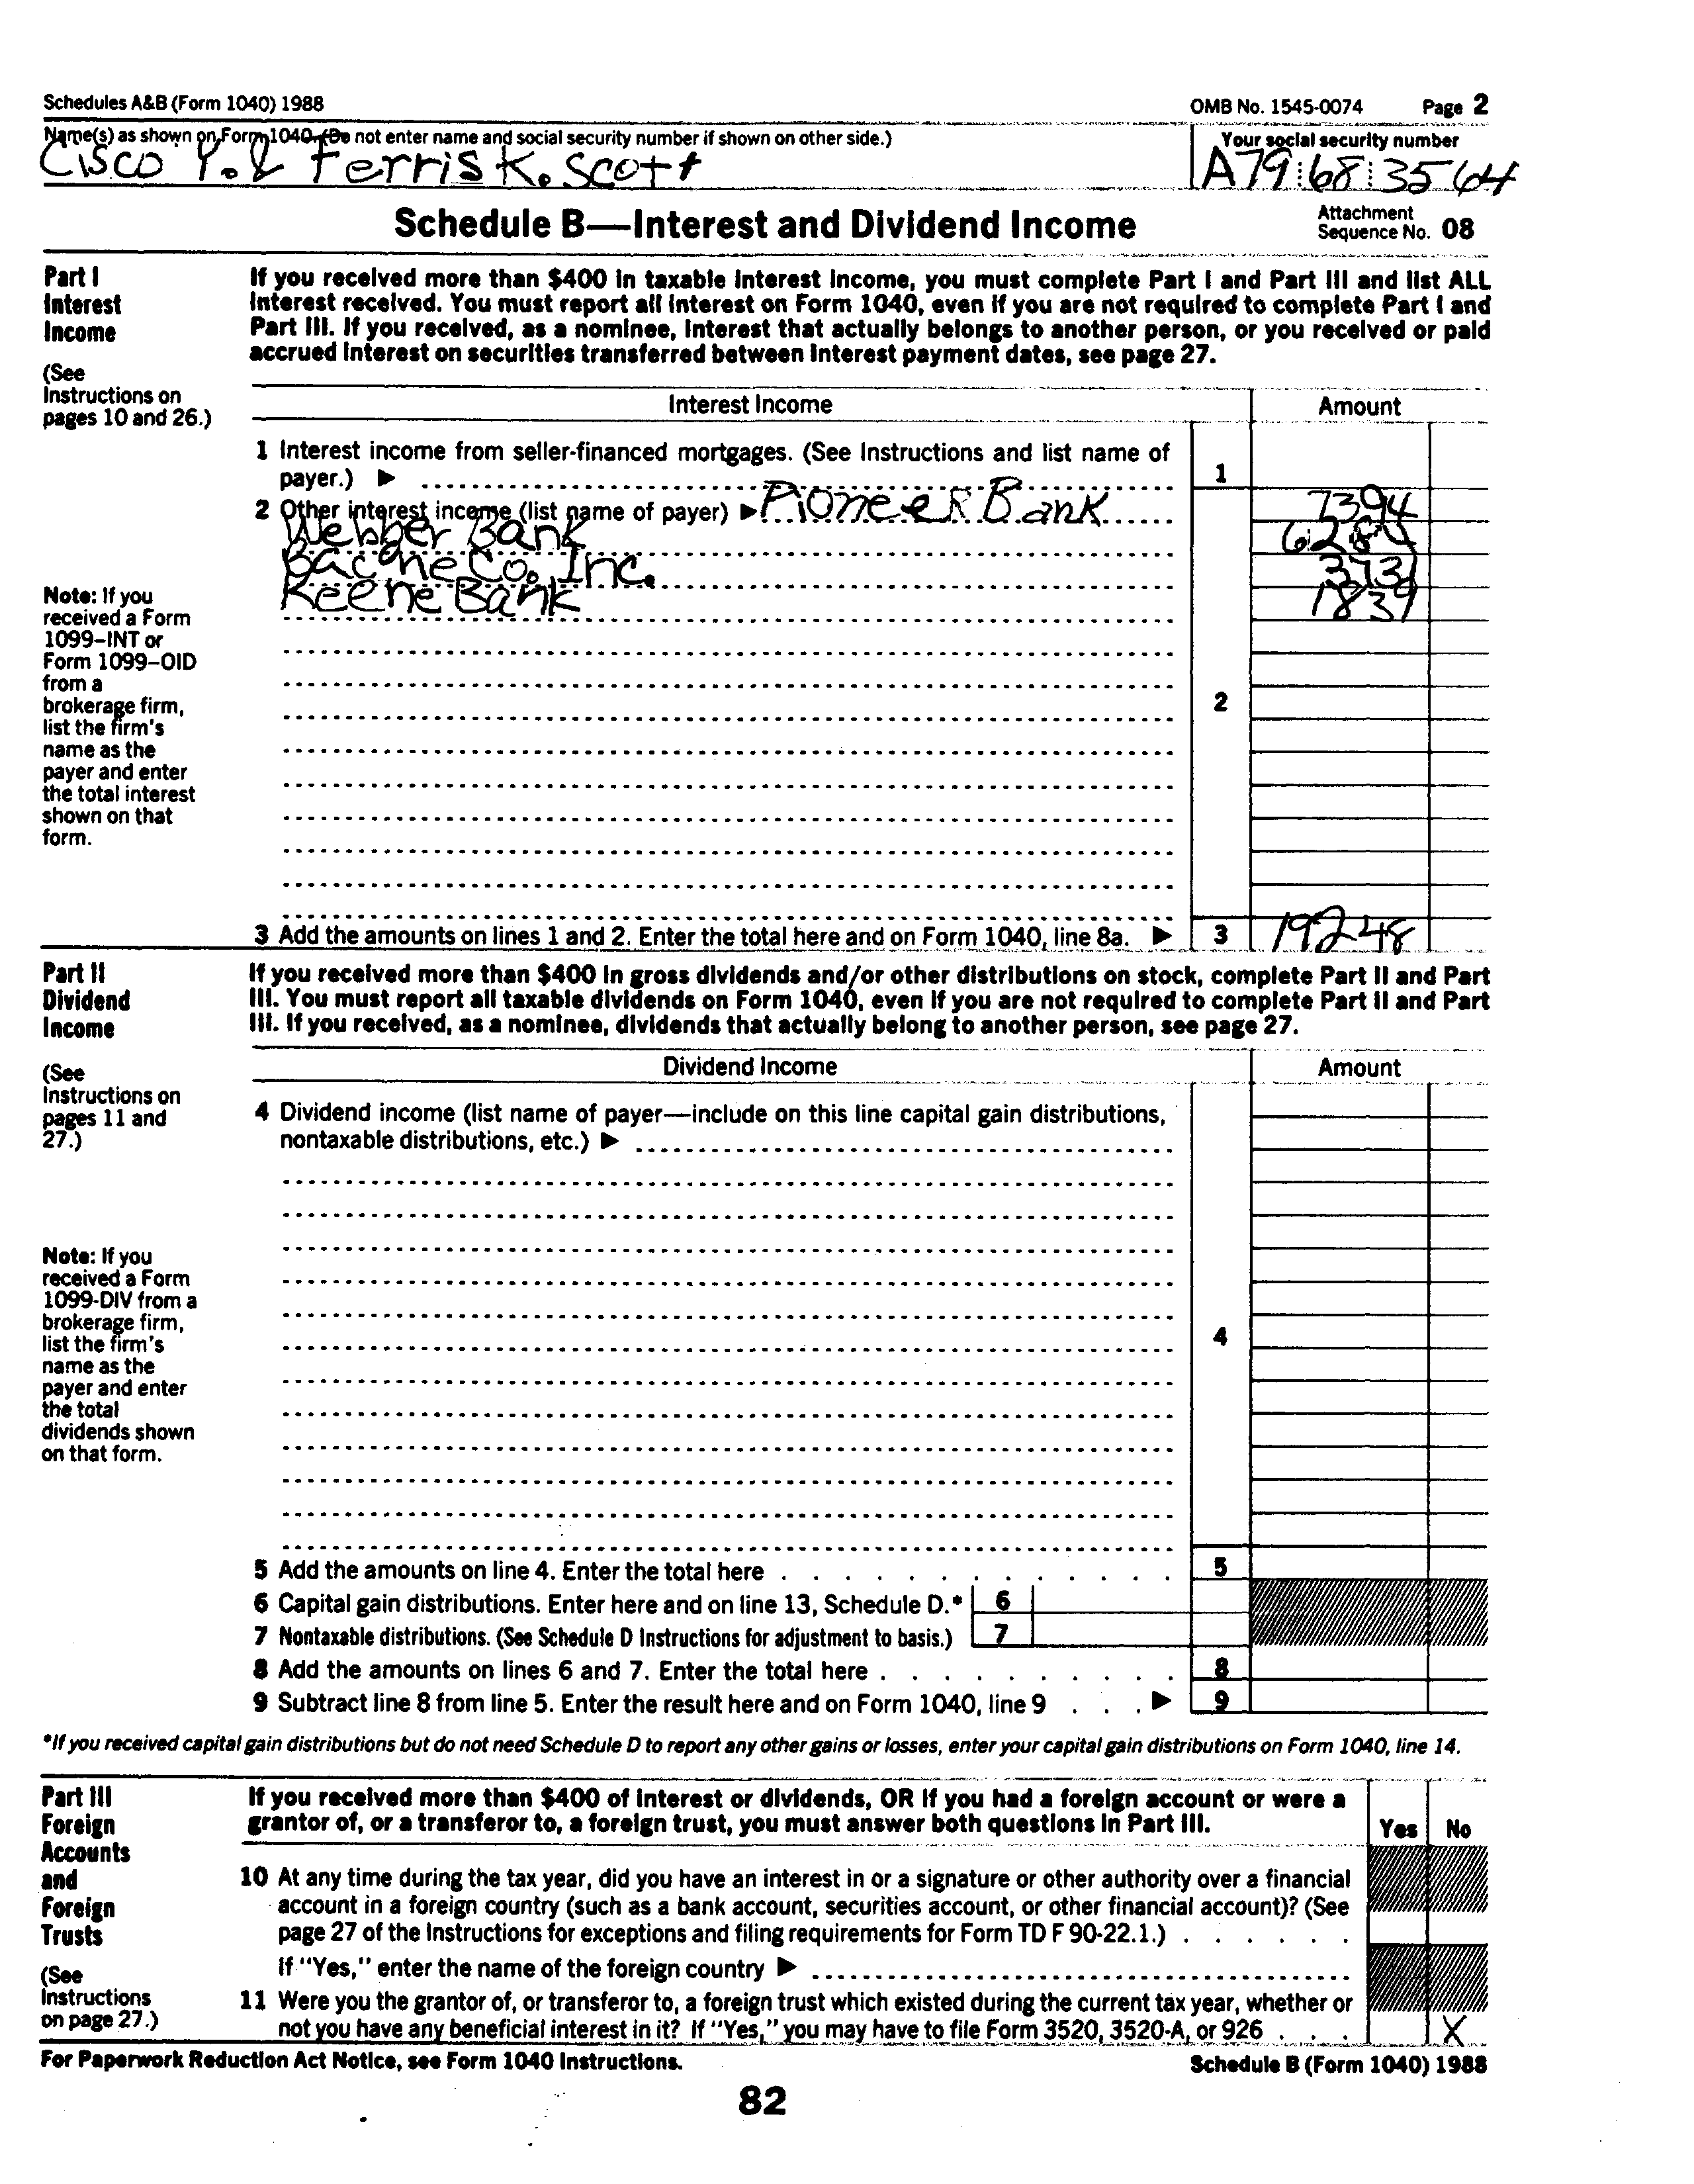 Schedules A&B (Form 1040) 1988 OMB No. 1545-0074 Page 2
Name(s) as shown on Form 1040. (Do not enter name and social security number if shown on other side.) Your social security number
Cisco Y. & Ferris K. Scott A79 68 3564
Schedule B—Interest and Dividend Income
Attachment
Sequence No. 08
Part I
Interest
Income
(See
Instructions on
pages 10 and 26.)
If you received more than $400 in taxable interest income, you must complete Part I and Part III and list ALL
interest received. You must report all interest on Form 1040, even if you are not required to complete Part I and
Part III. If you received, as a nominee, interest that actually belongs to another person, or you received or paid
accrued interest on securities transferred between interest payment dates, see page 27.
Interest Income Amount
1 Interest income from seller-financed mortgages. (See Instructions and list name of
payer.) ▶ 1
2 Other interest income (list name of payer) ▶ Pioneer Bank 7394
Webber Bank 6284
Bache Co. Inc. 3731
Keene Bank 1839
2
Note: If you
received a Form
1099–INT or
Form 1099–OID
from a
brokerage firm,
list the firm's
name as the
payer and enter
the total interest
shown on that
form.
3 Add the amounts on lines 1 and 2. Enter the total here and on Form 1040, line 8a. ▶ 3 19248
Part II
Dividend
Income
(See
Instructions on
pages 11 and
27.)
If you received more than $400 in gross dividends and/or other distributions on stock, complete Part II and Part
III. You must report all taxable dividends on Form 1040, even if you are not required to complete Part II and Part
III. If you received, as a nominee, dividends that actually belong to another person, see page 27.
Dividend Income Amount
4 Dividend income (list name of payer—include on this line capital gain distributions,
nontaxable distributions, etc.) ▶
4
Note: If you
received a Form
1099-DIV from a
brokerage firm,
list the firm's
name as the
payer and enter
the total
dividends shown
on that form.
5 Add the amounts on line 4. Enter the total here 5
6 Capital gain distributions. Enter here and on line 13, Schedule D.* 6
7 Nontaxable distributions. (See Schedule D Instructions for adjustment to basis.) 7
8 Add the amounts on lines 6 and 7. Enter the total here 8
9 Subtract line 8 from line 5. Enter the result here and on Form 1040, line 9 ▶ 9
*If you received capital gain distributions but do not need Schedule D to report any other gains or losses, enter your capital gain distributions on Form 1040, line 14.
Part III
Foreign
Accounts
and
Foreign
Trusts
(See
Instructions
on page 27.)
If you received more than $400 of interest or dividends, OR if you had a foreign account or were a
grantor of, or a transferor to, a foreign trust, you must answer both questions in Part III. Yes No
10 At any time during the tax year, did you have an interest in or a signature or other authority over a financial
account in a foreign country (such as a bank account, securities account, or other financial account)? (See
page 27 of the Instructions for exceptions and filing requirements for Form TD F 90-22.1.)
If "Yes," enter the name of the foreign country ▶
11 Were you the grantor of, or transferor to, a foreign trust which existed during the current tax year, whether or
not you have any beneficial interest in it? If "Yes," you may have to file Form 3520, 3520-A, or 926 X
For Paperwork Reduction Act Notice, see Form 1040 Instructions. Schedule B (Form 1040) 1988
82